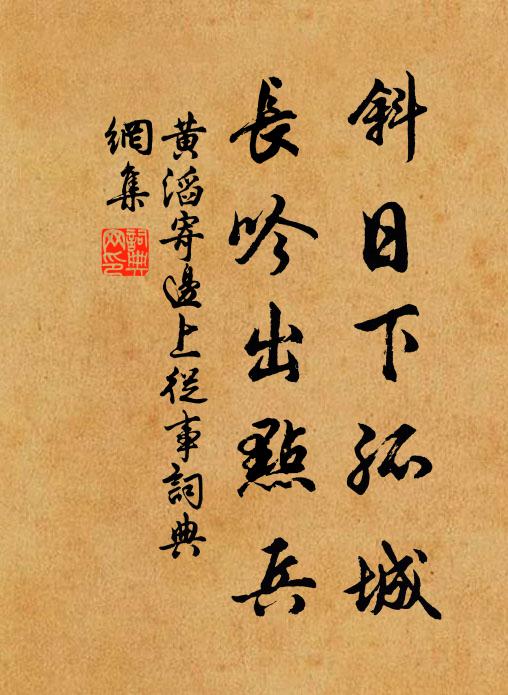 斜日下孤城
長吟出點兵
黄滔寄邊上從事詞典
網集
詞典網印